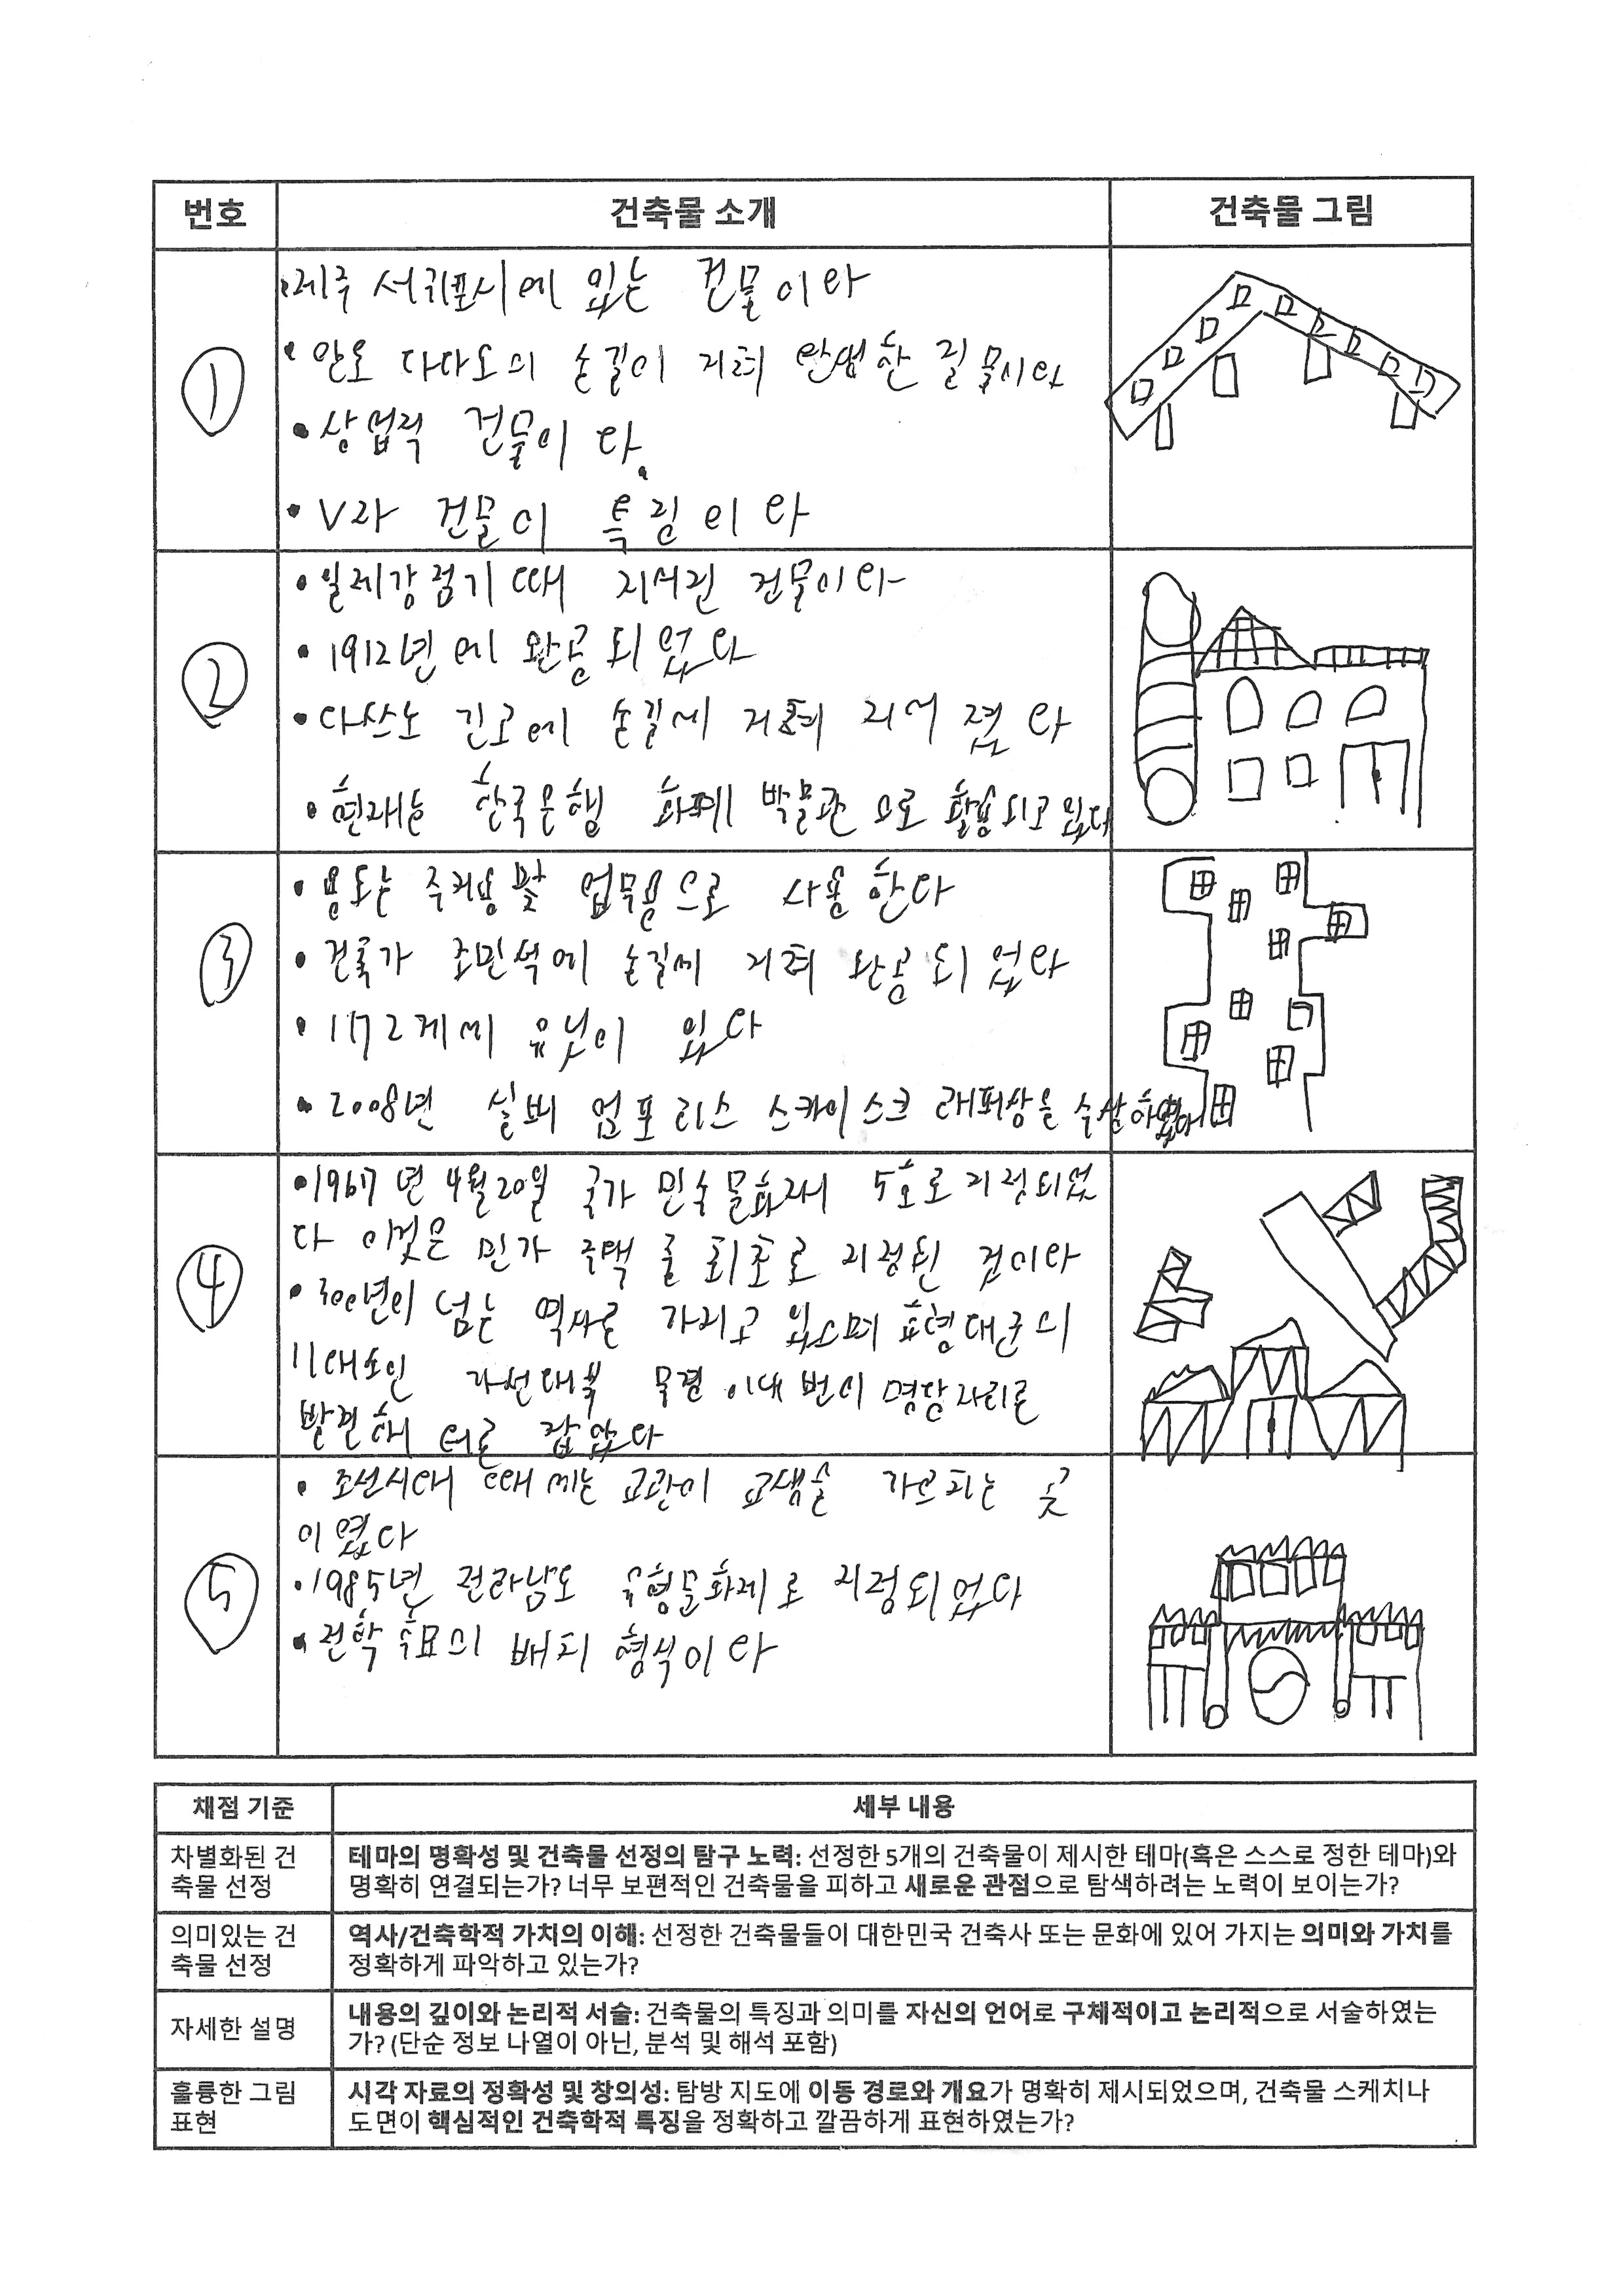 번호 건축물 소개 건축물 그림
①
•제주 서귀포시에 있는 건물이다
• 안도 다다오의 손길이 거쳐 탄생한 건물이다
• 상업적 건물이다.
• V라 건물이 특징이다
②
• 일제강점기 때 지어진 건물이다
• 1912년에 완공되었다
• 다쓰노 긴고에 손길에 거쳐 지어졌다
• 현재는 한국은행 화폐 박물관으로 활용되고 있다
③
• 용도는 주거용 및 업무용으로 사용한다
• 건축가 조민석에 손길에 거쳐 완공되었다
• 1172게에 유닛이 있다
• 2008년 실버 엠포리스 스카이스크래퍼상을 수상하였다
④
•1967년 4월 20일 국가 민속 문화재 5호로 지정되었
다 이것은 민가 주택 중 최초로 지정된 것이다
• 300년이 넘는 역사를 가지고 있으며 효령대군의
11대손인 가선대부 무경 이내번이 명당자리를
발견해 터를 잡았다
⑤
• 조선시대 때에는 교관이 교생을 가르치는 곳
이였다
•1985년 전라남도 유형문화제로 지정되었다
• 전학후묘의 배치 형식이다
채점 기준 세부 내용
차별화된 건 테마의 명확성 및 건축물 선정의 탐구 노력: 선정한 5개의 건축물이 제시한 테마(혹은 스스로 정한 테마)와
축물 선정 명확히 연결되는가? 너무 보편적인 건축물을 피하고 새로운 관점으로 탐색하려는 노력이 보이는가?
의미있는 건 역사/건축학적 가치의 이해: 선정한 건축물들이 대한민국 건축사 또는 문화에 있어 가지는 의미와 가치를
축물 선정 정확하게 파악하고 있는가?
자세한 설명 내용의 깊이와 논리적 서술: 건축물의 특징과 의미를 자신의 언어로 구체적이고 논리적으로 서술하였는
가? (단순 정보 나열이 아닌, 분석 및 해석 포함)
훌륭한 그림 시각 자료의 정확성 및 창의성: 탐방 지도에 이동 경로와 개요가 명확히 제시되었으며, 건축물 스케치나
표현 도면이 핵심적인 건축학적 특징을 정확하고 깔끔하게 표현하였는가?